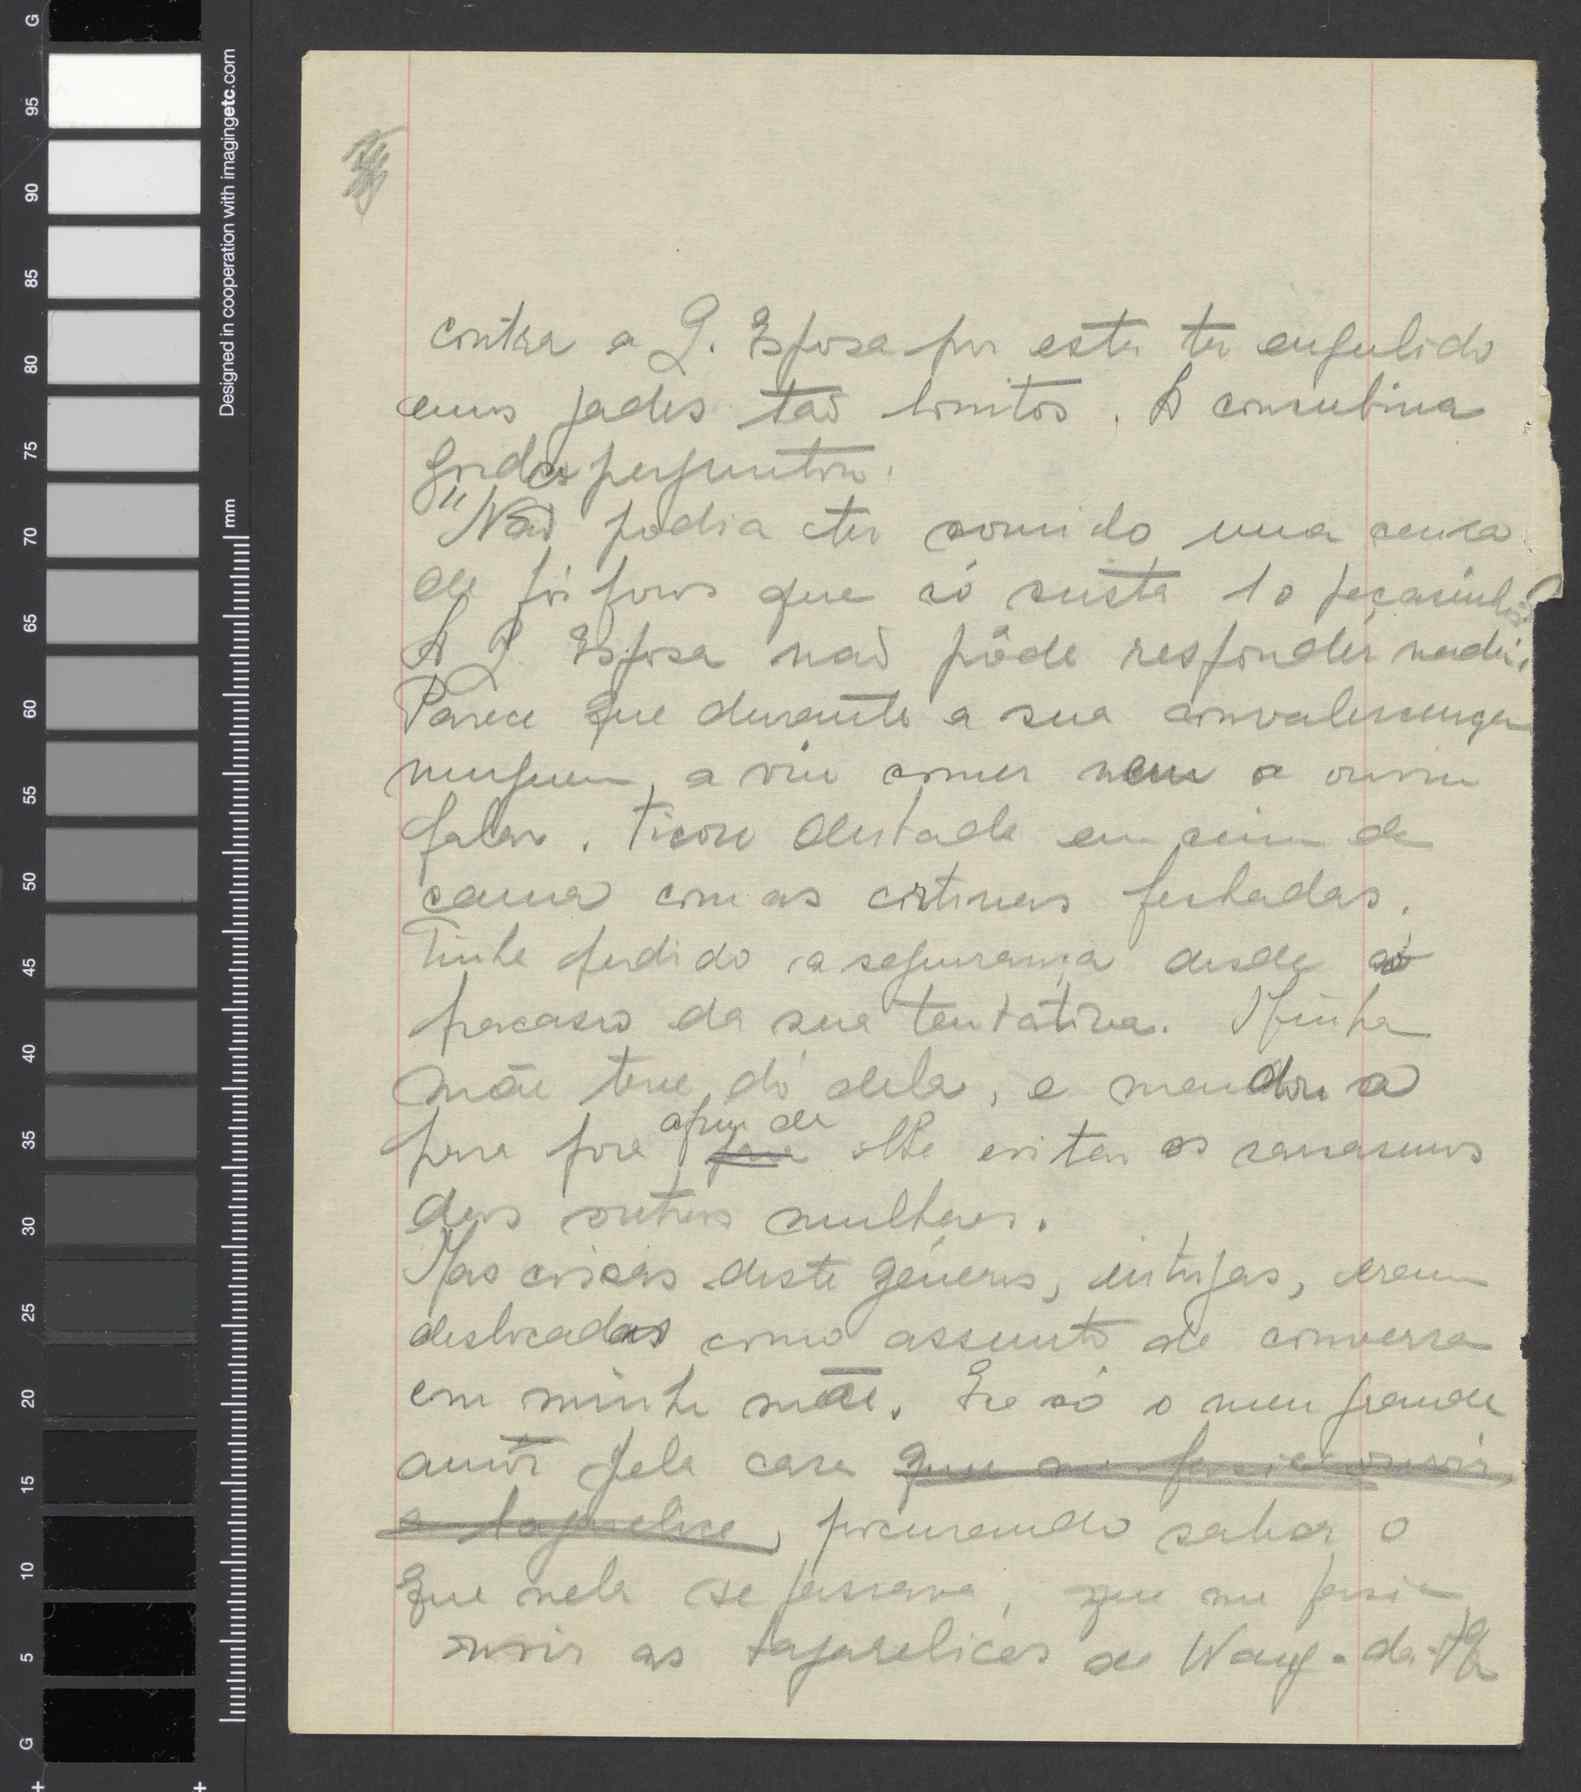 contra a Q. Esposa por esta ter engulido
uns jades tão bonitos. A concubina
gorda perguntou.
"Não podia ter comido uma caixa
de fósforos que só custa 10 peçasinhas?
A Q. Esposa não pôde responder nada.
Parece que durante a sua convalescença
ninguem a viu comer nem a ouviu
falar. Ficou deitada em cima da
cama com as cortinas fechadas.
Tinha perdido a segurança desde o
fracasso da sua tentativa. Minha
mãe teve dó dela, e mandou a
para fora afim de lhe evitar os sarcasmos
das outras mulheres.
Mas coisas deste género, intrigas, eram
deslocadas como assunto de conversa
em minha mãe. Era só o meu grande
amôr pela casa que me fasia ouvir
a tagarelice, procurando saber o
que nela se passava, que me fasia
ouvir as tagarelices de Wang-da-
G
95
90
85
80
75
70
65
60
55
50
45
40
35
30
25
20
15
10
5
G
Designed in cooperation with imagingetc.com
mm